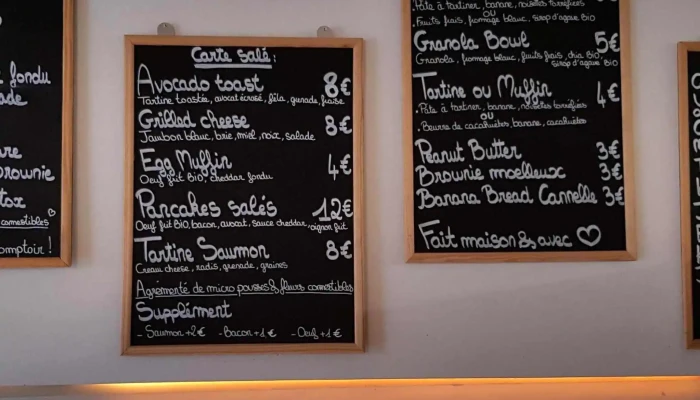 fondu
ade
re
rownie
tox
comestibles
omptoir !
Carte salé :
Avocado toast 8€
Tartine toastée, avocat écrasé, féta, grenade, fraise
Grilled cheese 8€
Jambon blanc, brie, miel, noix, salade
Egg Muffin 4€
Oeuf frit BIO, cheddar fondu
Pancakes salés 12€
Oeuf frit BIO, bacon, avocat, sauce cheddar, oignon frit
Tartine Saumon 8€
Cream cheese, radis, grenade, graines
Agrémenté de micro pousses & fleurs comestibles
Supplément
- Saumon +2€ - Bacon +1€ - Oeuf +1€
. Pâte à tartiner, banane, noisettes torréfiées
ou
. Fruits frais, fromage blanc, sirop d'agave BIO
Granola Bowl 5€
Granola, fromage blanc, fruits frais, chia BIO,
sirop d'agave BIO
Tartine ou Muffin 4€
. Pâte à tartiner, banane, noisettes torréfiées
ou
. Beurre de cacahuètes, banane, cacahuètes
Peanut Butter 3€
Brownie moelleux 3€
Banana Bread Cannelle 3€
Fait maison & avec ♡